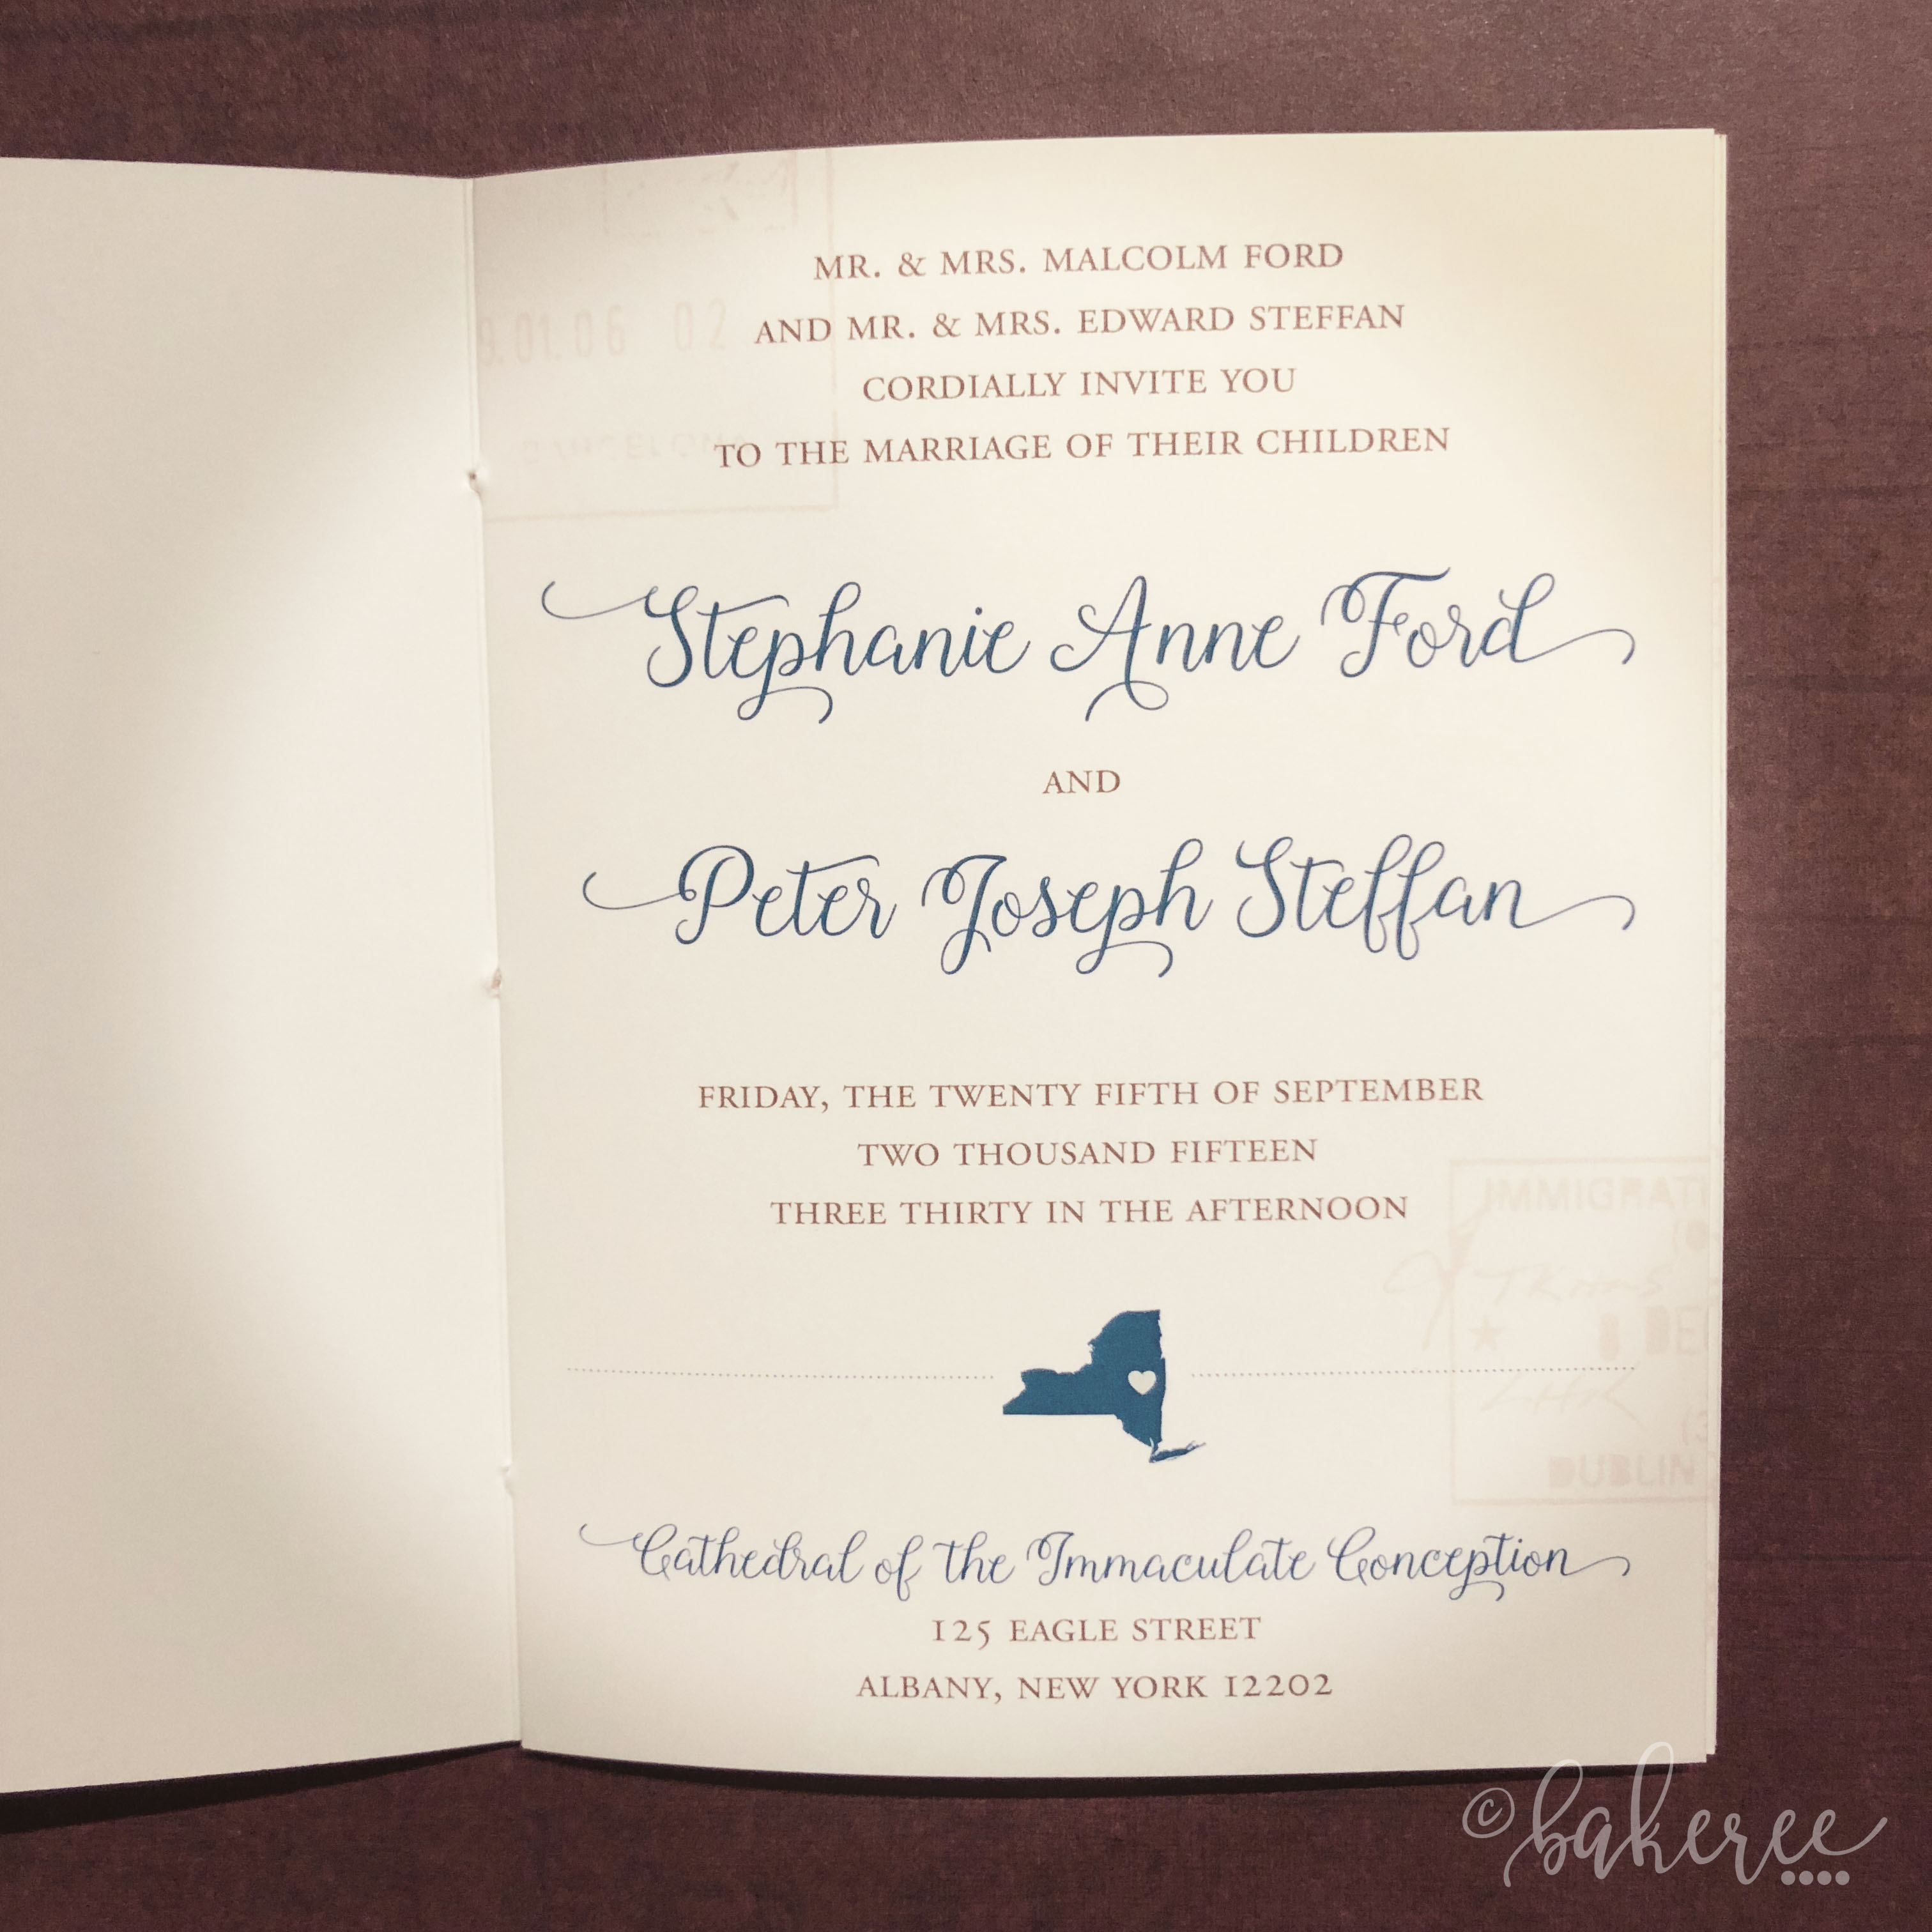 MR. & MRS. MALCOLM FORD
AND MR. & MRS. EDWARD STEFFAN
CORDIALLY INVITE YOU
TO THE MARRIAGE OF THEIR CHILDREN
Stephanie Anne Ford
AND
Peter Joseph Steffan
FRIDAY, THE TWENTY FIFTH OF SEPTEMBER
TWO THOUSAND FIFTEEN
THREE THIRTY IN THE AFTERNOON
Cathedral of the Immaculate Conception
125 EAGLE STREET
ALBANY, NEW YORK 12202
01.06 02
IMMIGRATI
DUBLIN
© bakeree